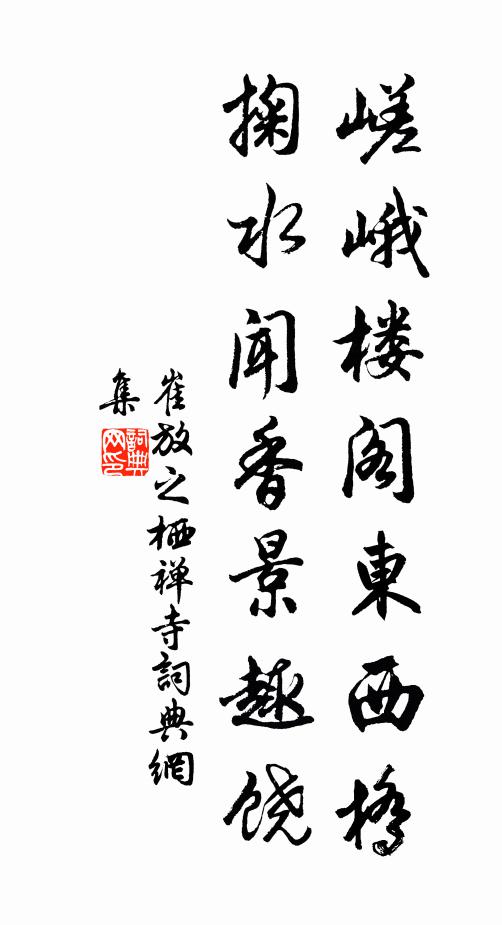 嵯峨楼阁東西橋
掬水闻香景趣饶
崔放之栖禅寺詞典網
集
詞典网印